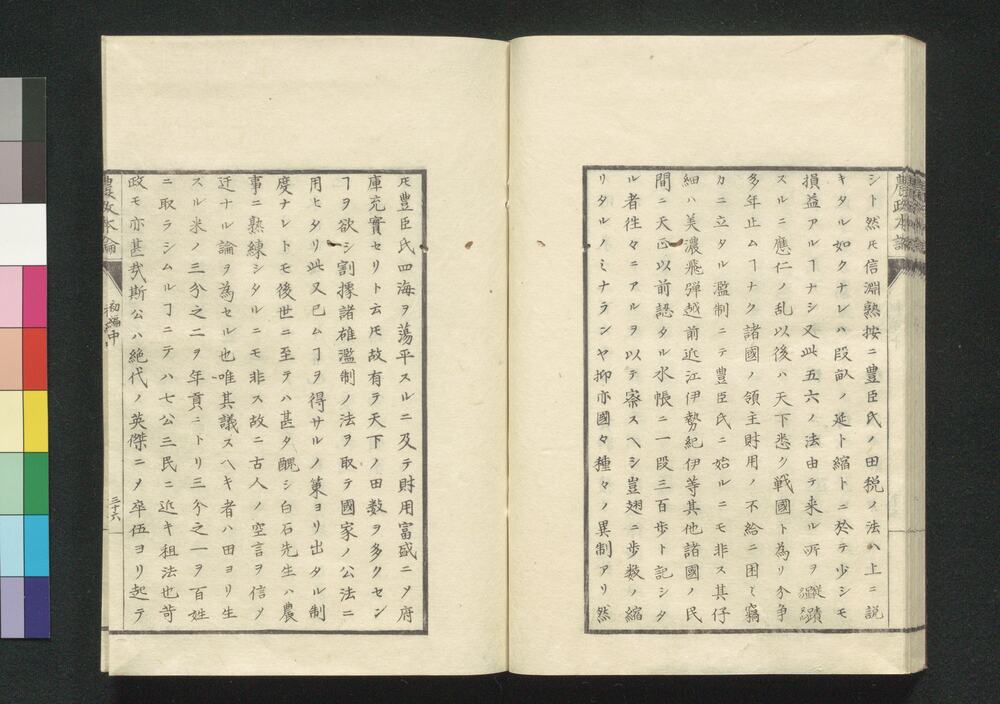 農政本論
シト然𪜈信淵熟按ニ豊臣氏ノ田税ノ法ハ上ニ説
キタル如クナレハ段畝ノ延ト縮トニ於テ少シモ
損益アルヿナシ又此五六ノ法由テ来ル所ヲ蹟
スルニ應仁ノ乱以後ハ天下悉ク戦國ト為リ分争
多年止ムヿナク諸國ノ領主財用ノ不給ニ困ミ竊
カニ立タル濫制ニテ豊臣氏ニ始ルニモ非ス其仔
細ハ美濃飛彈越前近江伊勢紀伊等其他諸國ノ民
間ニ天正以前認タル水帳ニ一段三百歩ト記シタ
ル者往々ニアルヲ以テ察スヘシ豈翅ニ歩数ノ縮
リタルノミナランヤ抑亦國々種々ノ異制アリ然
𪜈豊臣氏四海ヲ蕩平スルニ及テ財用富盛ニメ府
庫充實セリト云𪜈故有ラ天下ノ田数ヲ多クセン
ヿヲ欲シ割據諸雄濫制ノ法ヲ取テ國家ノ公法ニ
用ヒタリ此又已ムヿヲ得サルノ策ヨリ出タル制
度ナレトモ後世ニ至テハ甚タ醜シ白石先生ハ農
事ニ熟練シタルニモ非ス故ニ古人ノ空言ヲ信メ
迂ナル論ヲ為セル也唯其議スヘキ者ハ田ヨリ生
スル米ノ三分之二ヲ年貢ニトリ三分之一ヲ百姓
ニ取ラシムルヿニテハ七公三民ニ近キ租法也苛
政モ亦甚哉斯公ハ絶代ノ英傑ニメ卒伍ヨリ起テ
農政本論
初編中
三十六